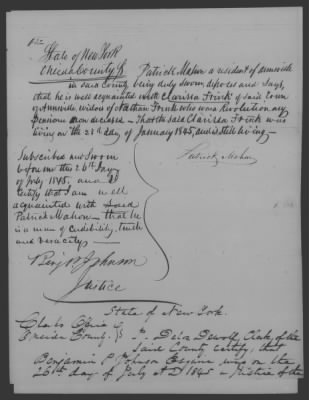 State of New York
Oneida County ss Patrick Mahon a resident of Annsville
in said County being duly sworn deposes and says,
that he is well acquainted with Clarissa Frink of said Town
of Annsville widow of Nathan Frink who was Revolutionary
Pensioner now deceased - That the said Clarissa Frink was
living on the 28th day of January 1845, and is still living -
Patrick Mahon
Subscribed and Sworn
before me this 26th day
of July 1845, and I
certify that I am well
acquainted with said
Patrick Mahon - that he
is a man of credibility, truth
and veracity -
Benj P Johnson
Justice
State of New York.
Clerks Office
Oneida County ss I, Delos Dewolf, Clerk of the
said County certify, that
Benjamin P Johnson Esquire was on the
26th day of July AD 1845 a Justice of the